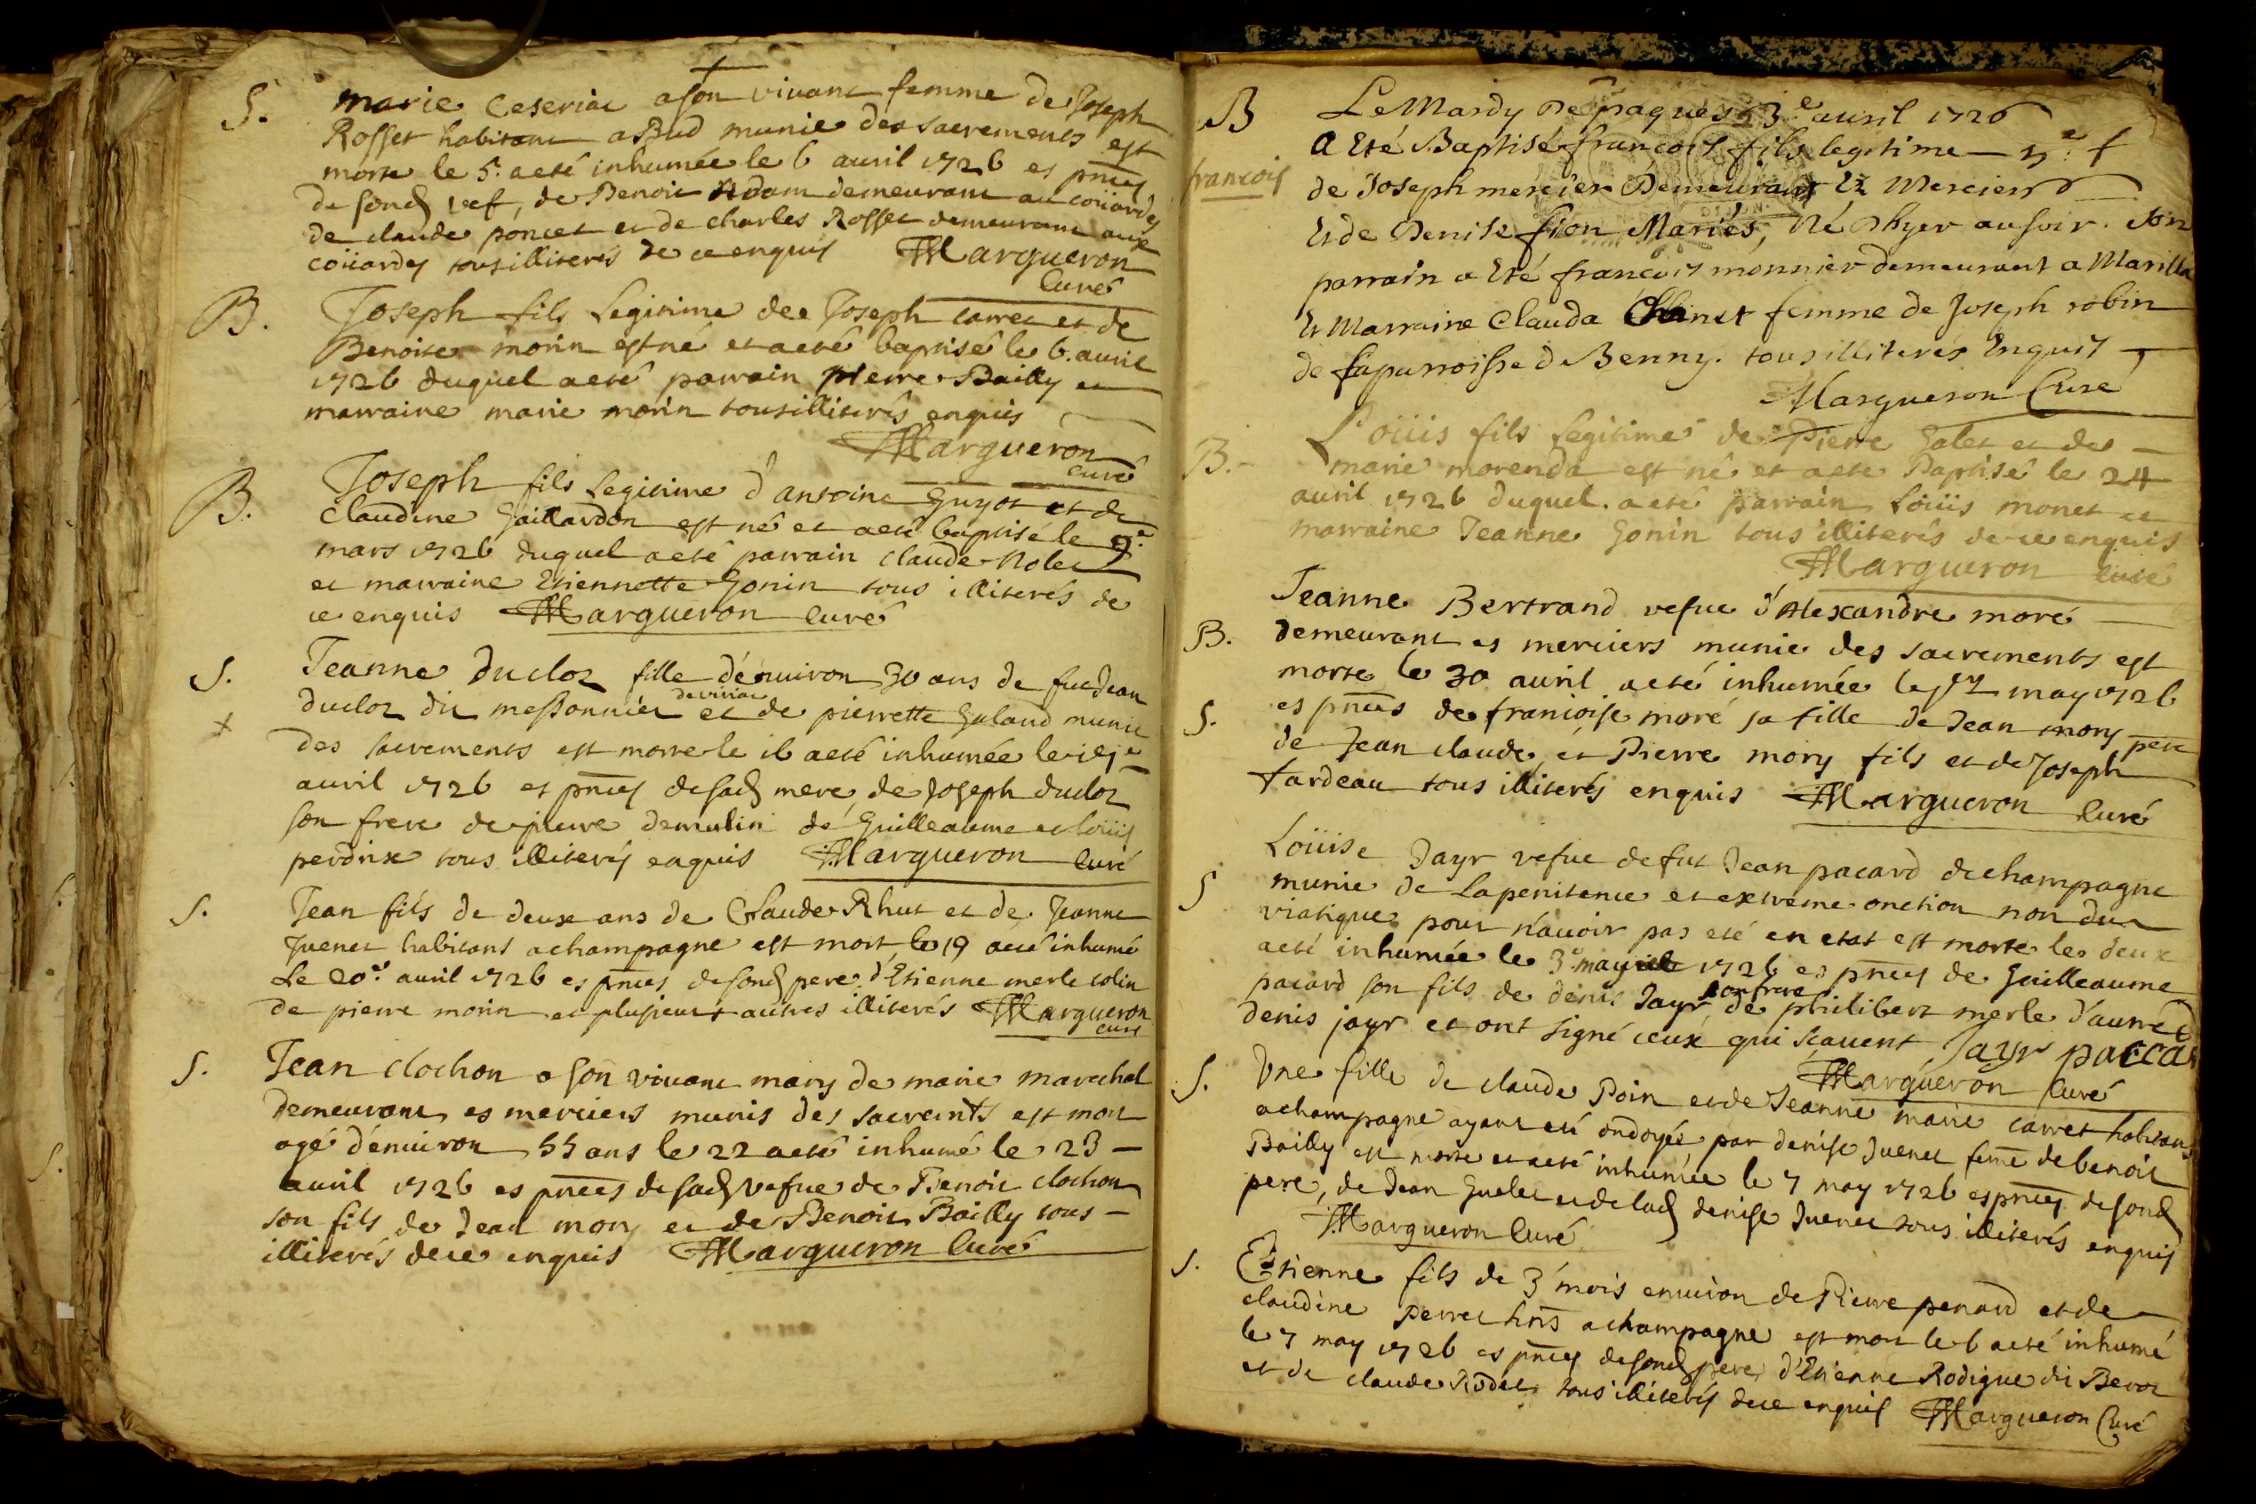 S.
marie Ceseriat a son vivant femme de Joseph
Rosset habitant a Bud munie des sacrements est
morte le 5. a eté inhumée le 6 avril 1726 es pnces
de sond vef, de Benoit Adam demeurant au coüardes
de claude poncet et de charles Rosset demeurant aux
coüardes tous illiterés de ce enquis Margueron
Curé
B.
Joseph fils legitime de Joseph carret et de
Benoite morin est né et a eté baptisé le 6. avril
1726 duquel a eté parrain pierre Bailly et
marraine marie morin tous illiterés enquis
Margueron
curé
B.
Joseph fils legitime d'antoine Guyot et de
claudine Gaillardon est né et a eté baptisé le 9.e
mars 1726 duquel a eté parrain claude Nolet
et marraine Etiennette Gonin tous illiterés de
ce enquis Margueron curé
S.
Jeanne Ducloz fille d'énuiron 30 ans de fut Jean
ducloz dit messonnier et de pierrette Galand munie
des sacrements est morte le 16 a eté inhumée le 17e
avril 1726 es pnces de sad mere de Joseph ducloz
son frere de pierre demulin de Guilleaume et loüis
perdrix tous illiterés enquis Margueron curé
S.
Jean fils de deux ans de Claude Rhut et de Jeanne
Juenet habitans a champagne est mort le 19 a eté inhumé
Le 20e. avril 1726 es pnces de sond pere d'Etienne merle colin
de pierre morin et plusieurs autres illiterés Margueron
curé
S.
Jean clochon a son vivant mary de marie marechal
demeurant es merciers munis des sacremts est mort
agé d'enuiron 55 ans le 22 a eté inhumé le 23
avril 1726 es pnces de sad vefue de Benoit clochon
son fils de Jean mory et de Benoit Bailly tous
illiterés de ce enquis Margueron Curé
B
francois
Le Mardy De paques 23.e avril 1726
A Eté Baptisé francois fils legitime
de Joseph mercier Demeurant Ez Merciers
Et de Denise fion Mariés, Né Dhyer au soir. Son
parrain a Eté francois monnier demeurant a Marilla
Et Marraine Clauda femme de Joseph robin
de la parroisse de Benny. tous illiterés Enquis
Margueron Cure
B.
Loüis fils legitime de Pierre Galet et de
marie morenda est né et a eté Baptisé le 24
avril 1726 duquel a eté parrain Loüis monet et
marraine Jeanne Gonin tous illiterés de ce enquis
Margueron curé
B.
S.
Jeanne Bertrand vefue d'Alexandre moré
demeurant es merciers munie des sacrements est
morte le 30 avril a eté inhumée le 1er may 1726
es pnces de francoise moré sa fille de Jean mory pere
de Jean claude et Pierre mory fils et de Joseph
tardeau tous illiterés enquis Margueron Curé
S
Loüise Jayr vefue de fut Jean pacard de champagne
munie de la penitence et extreme onction non du
viatique pour n'auoir pas eté en etat est morte le deux
a eté inhumée le 3e may 1726 es pnces de Guilleaume
pacard son fils de denis Jayr son frere de philibert merle d'autre
denis jayr et ont signé ceux qui scauent Jayr paccar
Margueron Curé
S.
Une fille de claude Poin et de Jeanne marie carret habitans
a champagne ayant eté ondoyée par denise Juenet feme de benoit
Bailly est morte et a eté inhumée le 7 may 1726 es pnces de sond
pere, de Jean Guelet et de lad denise Juenet tous illiterés enquis
Margueron Curé
S.
Etienne fils de 3 mois enuiron de Pierre penard et de
claudine Perret hns a champagne est mort le 6 a eté inhumé
le 7 may 1726 es pnces de sond pere, d'Etienne Rodigue dit Beroz
et de claude Rodet tous illiterés de ce enquis Margueron Curé